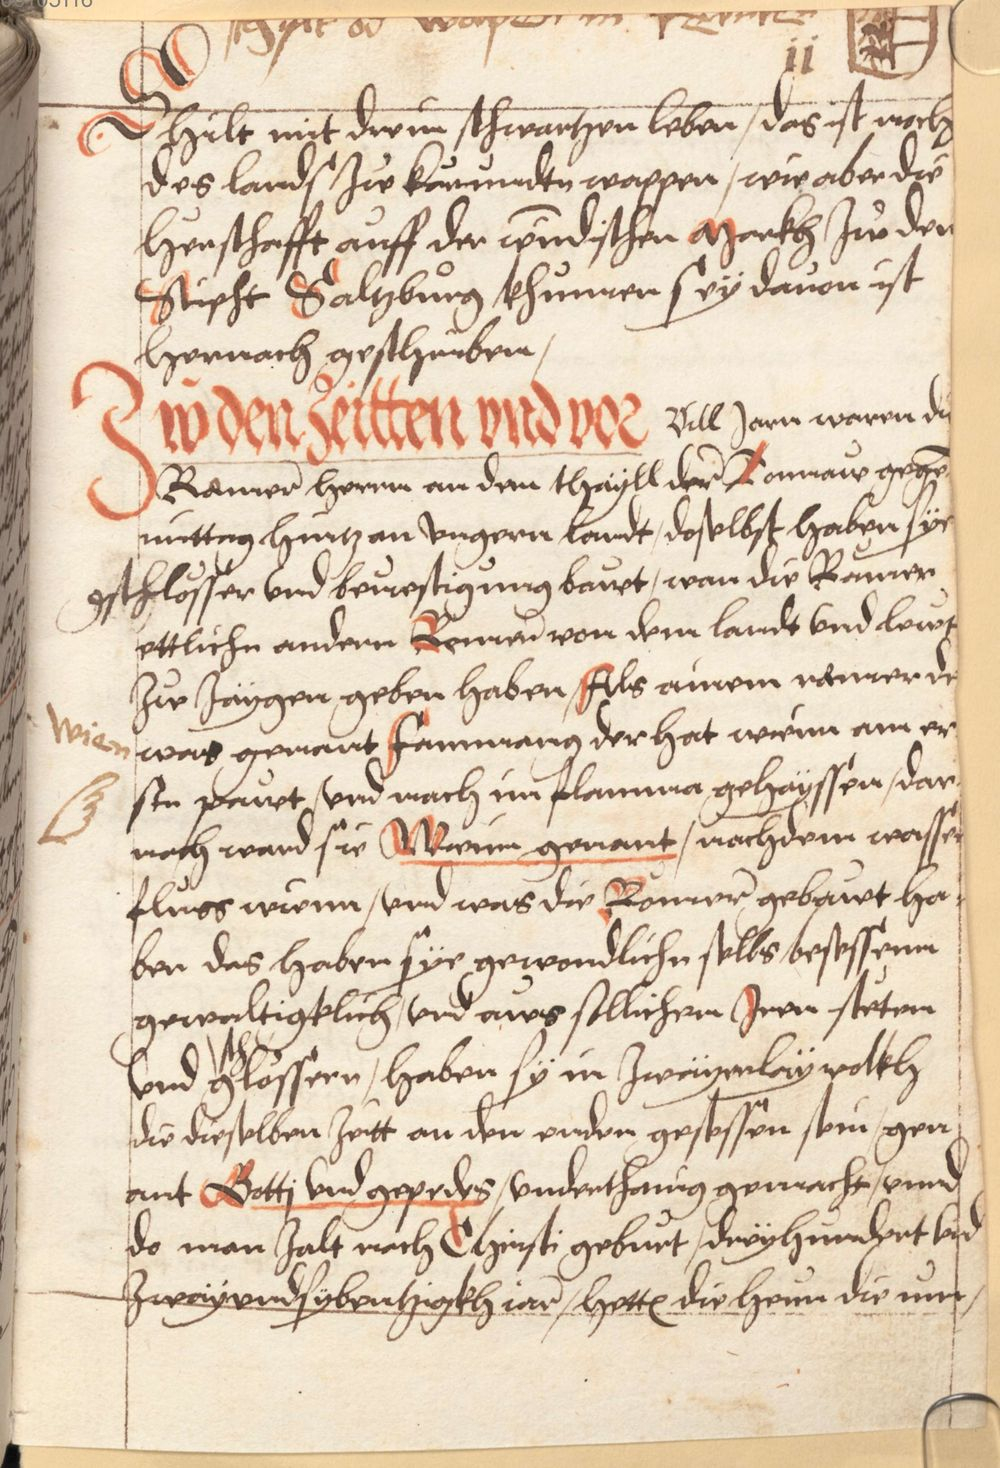 ii
Schilt mit drein schwartzen leben / das ist noch
des lands Zw karnndtn wappen / wie aber die
herschafft auff der windischen Markh Zw den
Stipht Saltzburg khumen sey dauon ist
hernach geschriben /
Zw den Zeitten vnd vor Vill Jarn waren die
Ramer herrn an dem thayll der Tonnaw gegen
mittag hintz an vngern landt / doselbst haben sye
gschlosser vnd beuestigung bauet / wan die Ramer
ettlichn andern Remern von dem landt vnd lewt
Zw Zaygen geben haben / Als ainem ramer de
was genant Fannanng der hat wienn am er
sten pauet / vnd nach im flamma gehayssen / dar
Wien
nach ward sie Wienn genant / nachdem wasser
fluss wienn / vnd was die Romer gebauet ha-
ben das haben sye gewondlichn selbs besessenn
gewaltigklich / vnd aus sollichem Iren steten
vnd gschlossern / haben sy in Zwayerlay volkh
die dieselben Zeitt an den enden gesessen sein / gen
ant Gotti vnd gepedes / vnderthanig gemacht / vnnd
do man Zalt nach Christi geburt / dreyhundert vnd
Zwayvndsybentzigkh iar / hette die heun die nun /